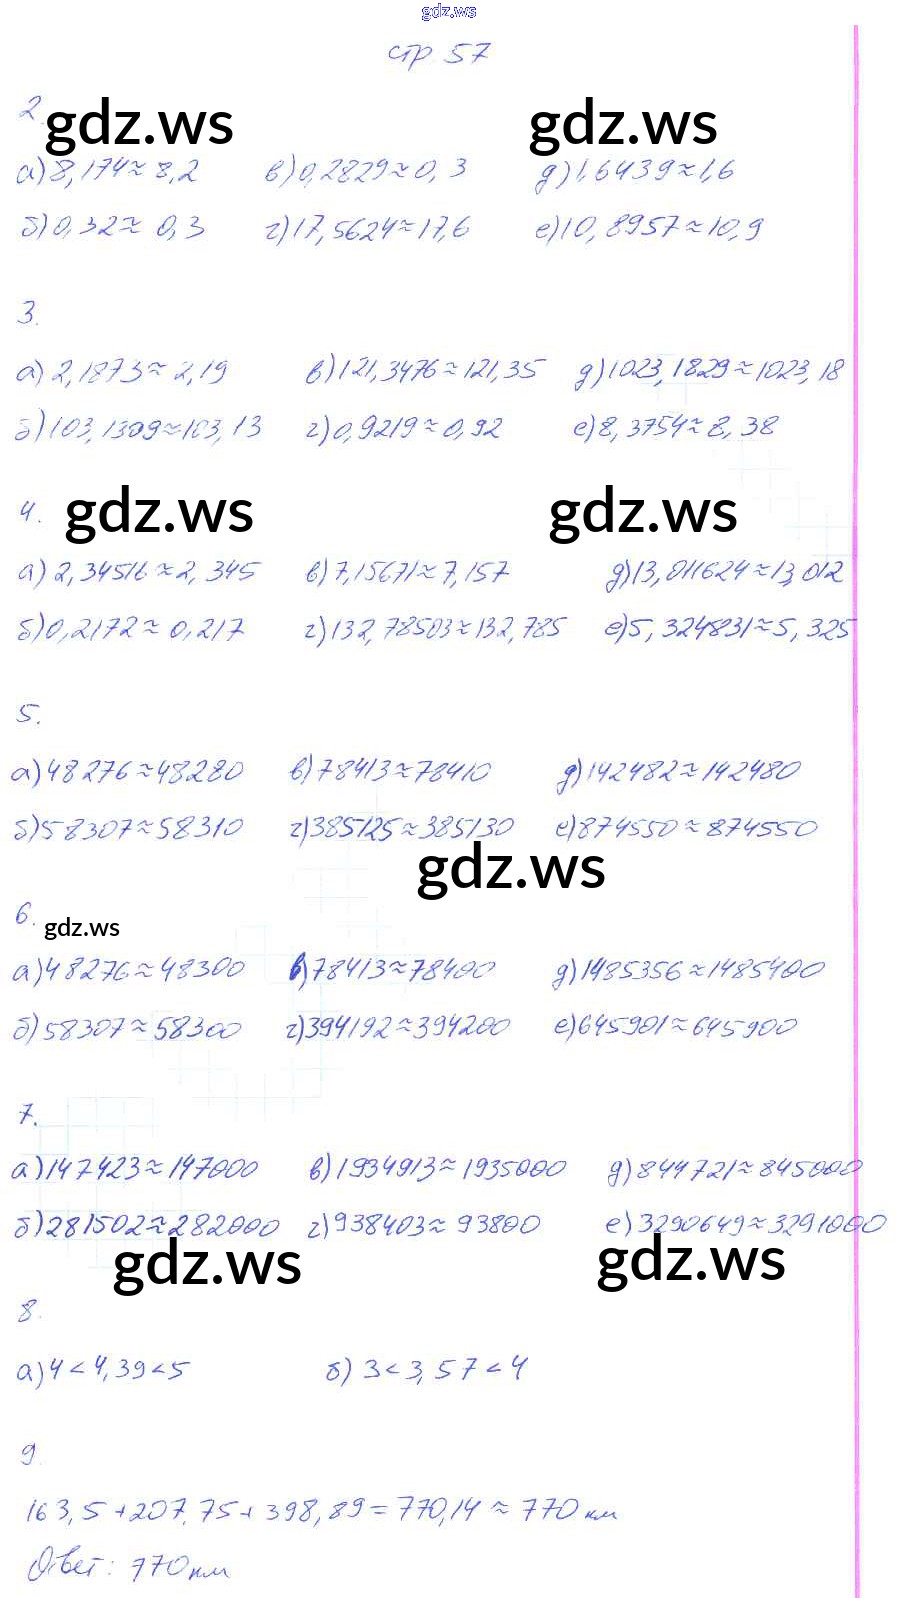 gdz.ws
стр 57
2.
gdz.ws gdz.ws
а) 8,174 ≈ 8,2 в) 0,2829 ≈ 0,3 д) 1,6439 ≈ 1,6
б) 0,32 ≈ 0,3 г) 17,5624 ≈ 17,6 е) 10,8957 ≈ 10,9
3.
а) 2,1873 ≈ 2,19 в) 121,3476 ≈ 121,35 д) 1023,1829 ≈ 1023,18
б) 103,1309 ≈ 103,13 г) 0,9219 ≈ 0,92 е) 8,3754 ≈ 8,38
4.
gdz.ws gdz.ws
а) 2,34516 ≈ 2,345 в) 7,15671 ≈ 7,157 д) 13,011624 ≈ 13,012
б) 0,2172 ≈ 0,217 г) 132,78503 ≈ 132,785 е) 5,324831 ≈ 5,325
5.
а) 48276 ≈ 48280 в) 78413 ≈ 78410 д) 142482 ≈ 142480
б) 58307 ≈ 58310 г) 385125 ≈ 385130 е) 874550 ≈ 874550
gdz.ws
6.
gdz.ws
а) 48276 ≈ 48300 в) 78413 ≈ 78400 д) 1485356 ≈ 1485400
б) 58307 ≈ 58300 г) 394192 ≈ 394200 е) 645901 ≈ 645900
7.
а) 147423 ≈ 147000 в) 1934913 ≈ 1935000 д) 844721 ≈ 845000
б) 281502 ≈ 282000 г) 938403 ≈ 93800 е) 3290649 ≈ 3291000
gdz.ws gdz.ws
8.
а) 4 < 4,39 < 5 б) 3 < 3,57 < 4
9.
163,5 + 207,75 + 398,89 = 770,14 ≈ 770 км
Ответ: 770 км